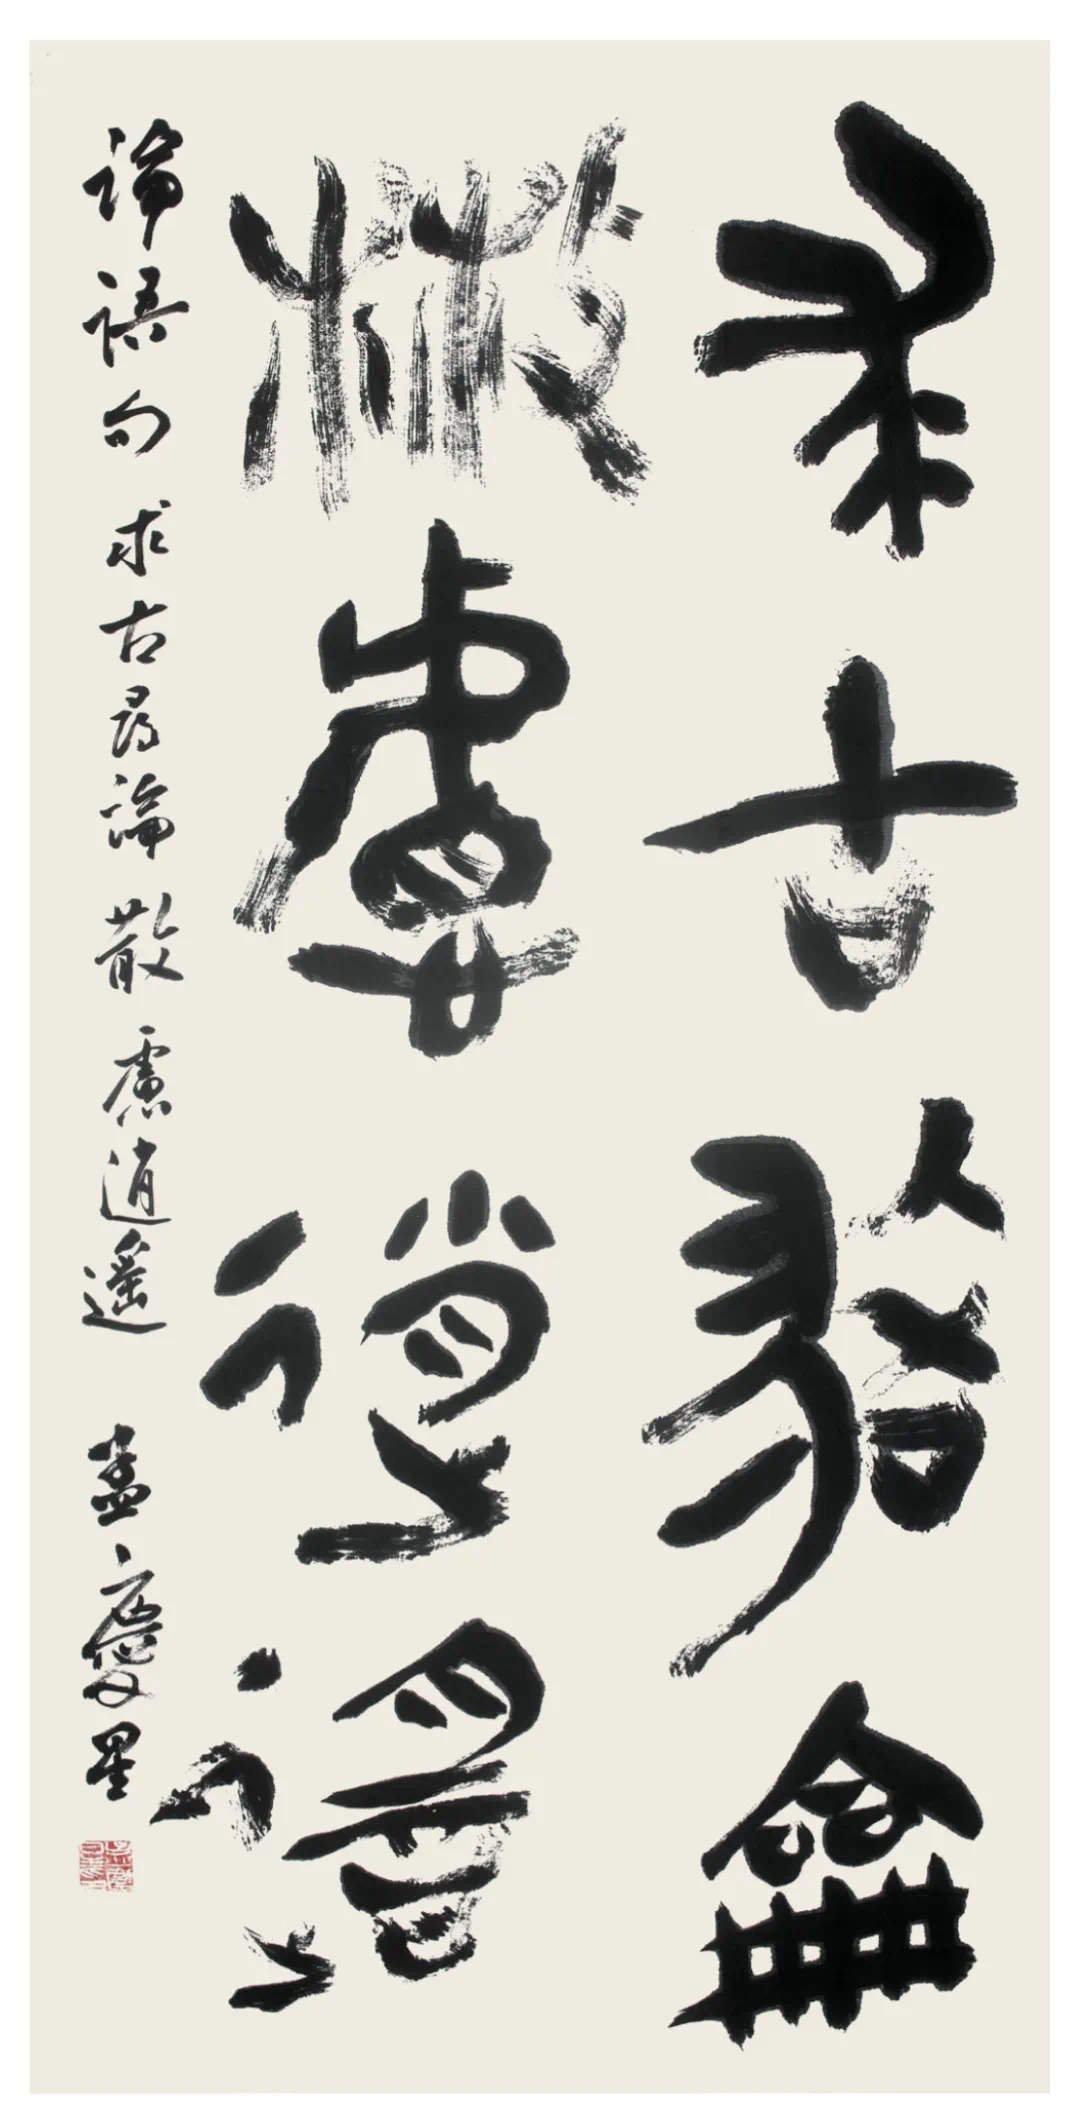 求古尋論
散慮逍遙
論語句 求古尋論 散慮逍遙 孟慶星